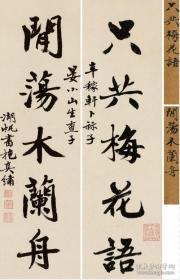 只共梅花語
閒蕩木蘭舟
只共梅花語
辛稼軒卜祘子
晏小山生查子
閒蕩木蘭舟
湖帆書